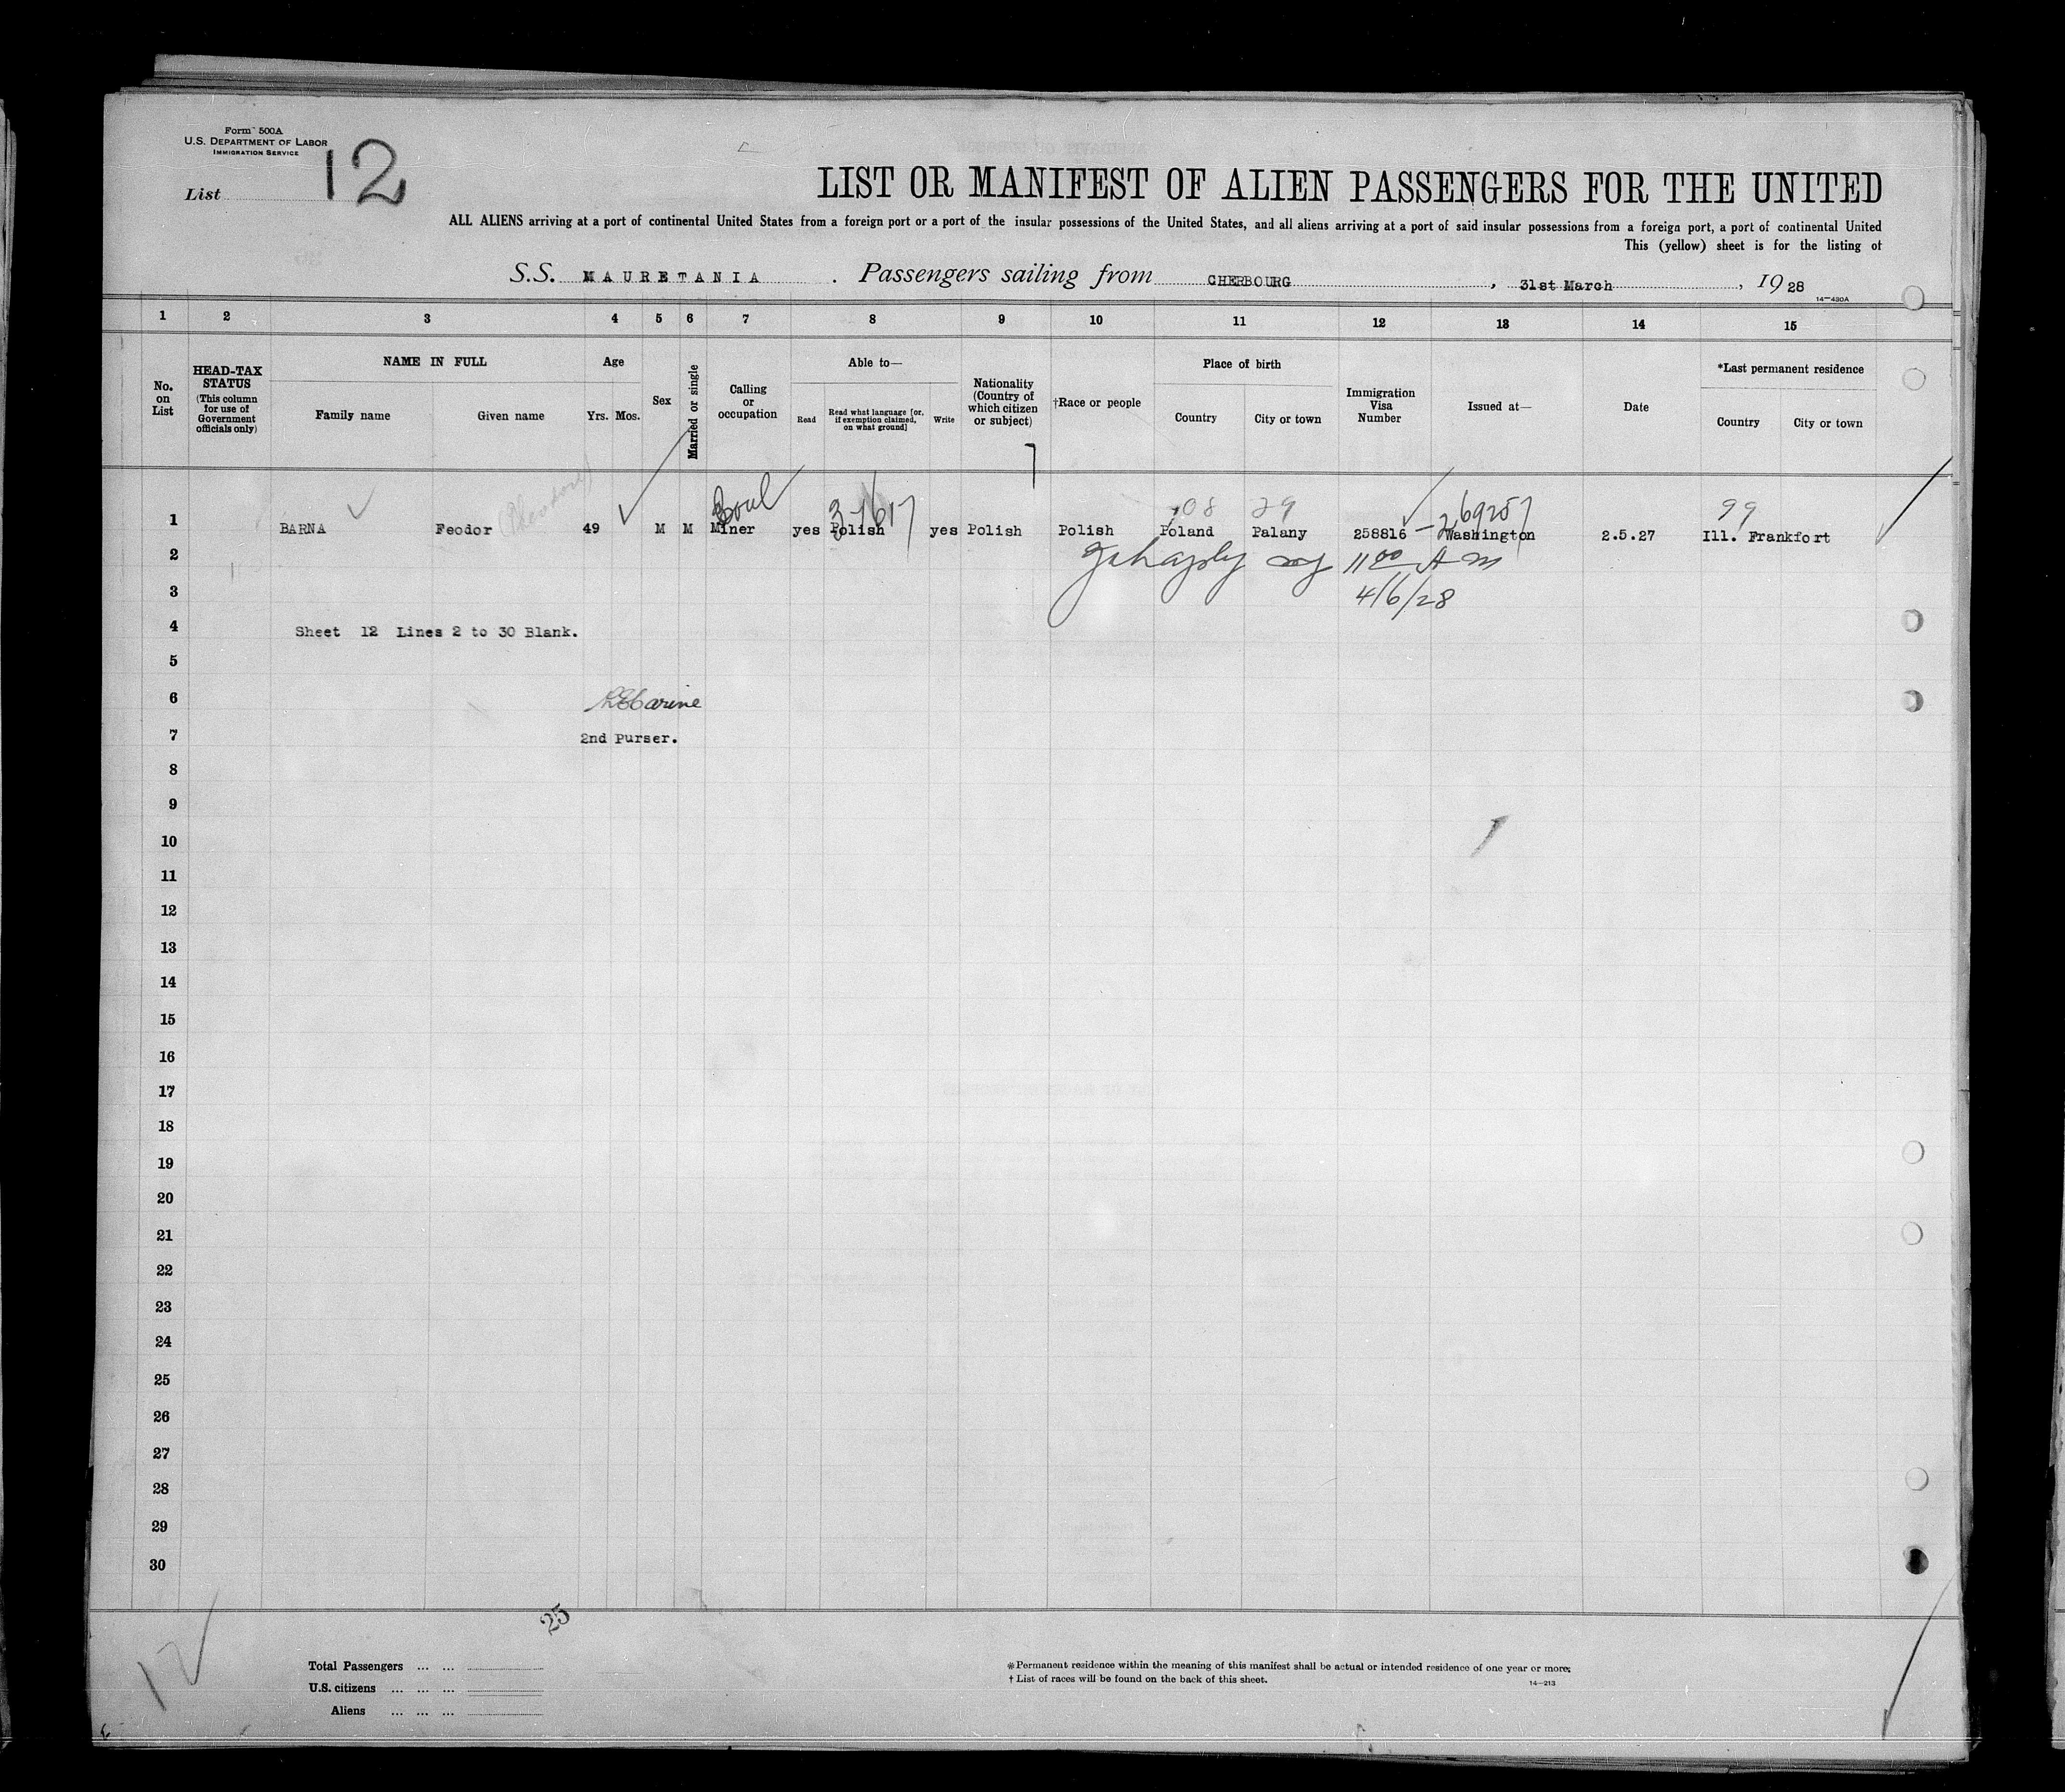 Form 500A
U.S. DEPARTMENT OF LABOR
IMMIGRATION SERVICE
List 12
LIST OR MANIFEST OF ALIEN PASSENGERS FOR THE UNITED
ALL ALIENS arriving at a port of continental United States from a foreign port or a port of the insular possessions of the United States, and all aliens arriving at a port of said insular possessions from a foreign port, a port of continental United
This (yellow) sheet is for the listing of
S.S. MAURETANIA. Passengers sailing from CHERBOURG, 31st March, 1928
14—430A
1 2 3 4 5 6 7 8 9 10 11 12 13 14 15
No. on List
HEAD-TAX STATUS (This column for use of Government officials only)
NAME IN FULL
Family name
Given name
Age
Yrs. Mos.
Sex
Married or single
Calling or occupation
Able to—
Read
Read what language [or, if exemption claimed, on what ground]
Write
Nationality (Country of which citizen or subject)
†Race or people
Place of birth
Country
City or town
Immigration Visa Number
Issued at—
Date
*Last permanent residence
Country
City or town
(Theodore) Coal 08 29 99
1 BARNA Feodor 49 M M Miner yes Polish yes Polish Polish Poland Palany 258816 Washington 2.5.27 Ill. Frankfort
2 11 00 A m
3 4/6/28
4 Sheet 12 Lines 2 to 30 Blank.
5
6
7 2nd Purser.
8
9
10
11
12
13
14
15
16
17
18
19
20
21
22
23
24
25
26
27
28
29
30
25
12
Total Passengers ... ...
U.S. citizens ... ... ...
Aliens ... ... ...
*Permanent residence within the meaning of this manifest shall be actual or intended residence of one year or more.
† List of races will be found on the back of this sheet.
14—213